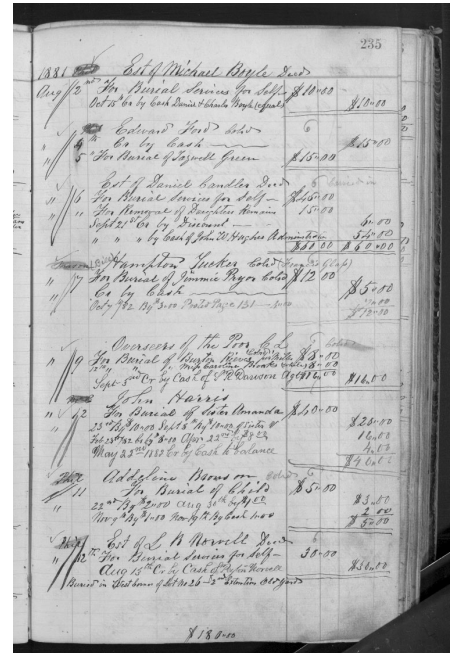 235
1881 Est of Michael Boyle Decd
Aug 2nd For Burial Services for Self $10.00
Oct 15 Cr by Cash Daniel & Charles Boyle (equal) $10.00
Edward Ford Cold 6
" 4 Cr by Cash $15.00
" 5 " For Burial of Tazwell Green $15.00
Est of Daniel Candler Decd 6
" 6 For Burial Services for Self $45.00
" " For Removal of Daughters Remains 15.00
Sept 21st Cr by Discount 6.00
" " " by Cash of John W. Hughes Administrator 54.00
$60.00 $60.00
Hampton Tucker Cold
" 7 For Burial of Jimmie Pryor Cold $12.00
" Cr by Cash $5.00
Oct 7 /82 By $3.00
$12.00
Overseers of the Poor C L
" 9 For Burial of Burton $8.00
12th " " " Miss Caroline $8.00
Sept 3rd Cr by Cash of Dawson Agt $16.00 $16.00
John Harris
" 12 For Burial of Sister Amanda $40.00
23rd By $10.00 Sept 8th By 10.00 $28.00
Feb 23rd /82 by $8.00 16.00
May 23rd 188 Cr by Cash to balance
Addeline Brown Cold 6
" 11 For Burial of Child $5.00
22nd By $2.00 Aug 30th by $1.00 $3.00
Nov 9th By $1.00 Nov 19th By Cash 1.00 2.00
$5.00
Est of L B Norvell Decd 6
" 12th For Burial Services for Self 30.00
Aug 15th Cr by Cash of Norvell $30.00
Buried in East corner of Lot No 26 2nd Extention Old Yard
$180.00